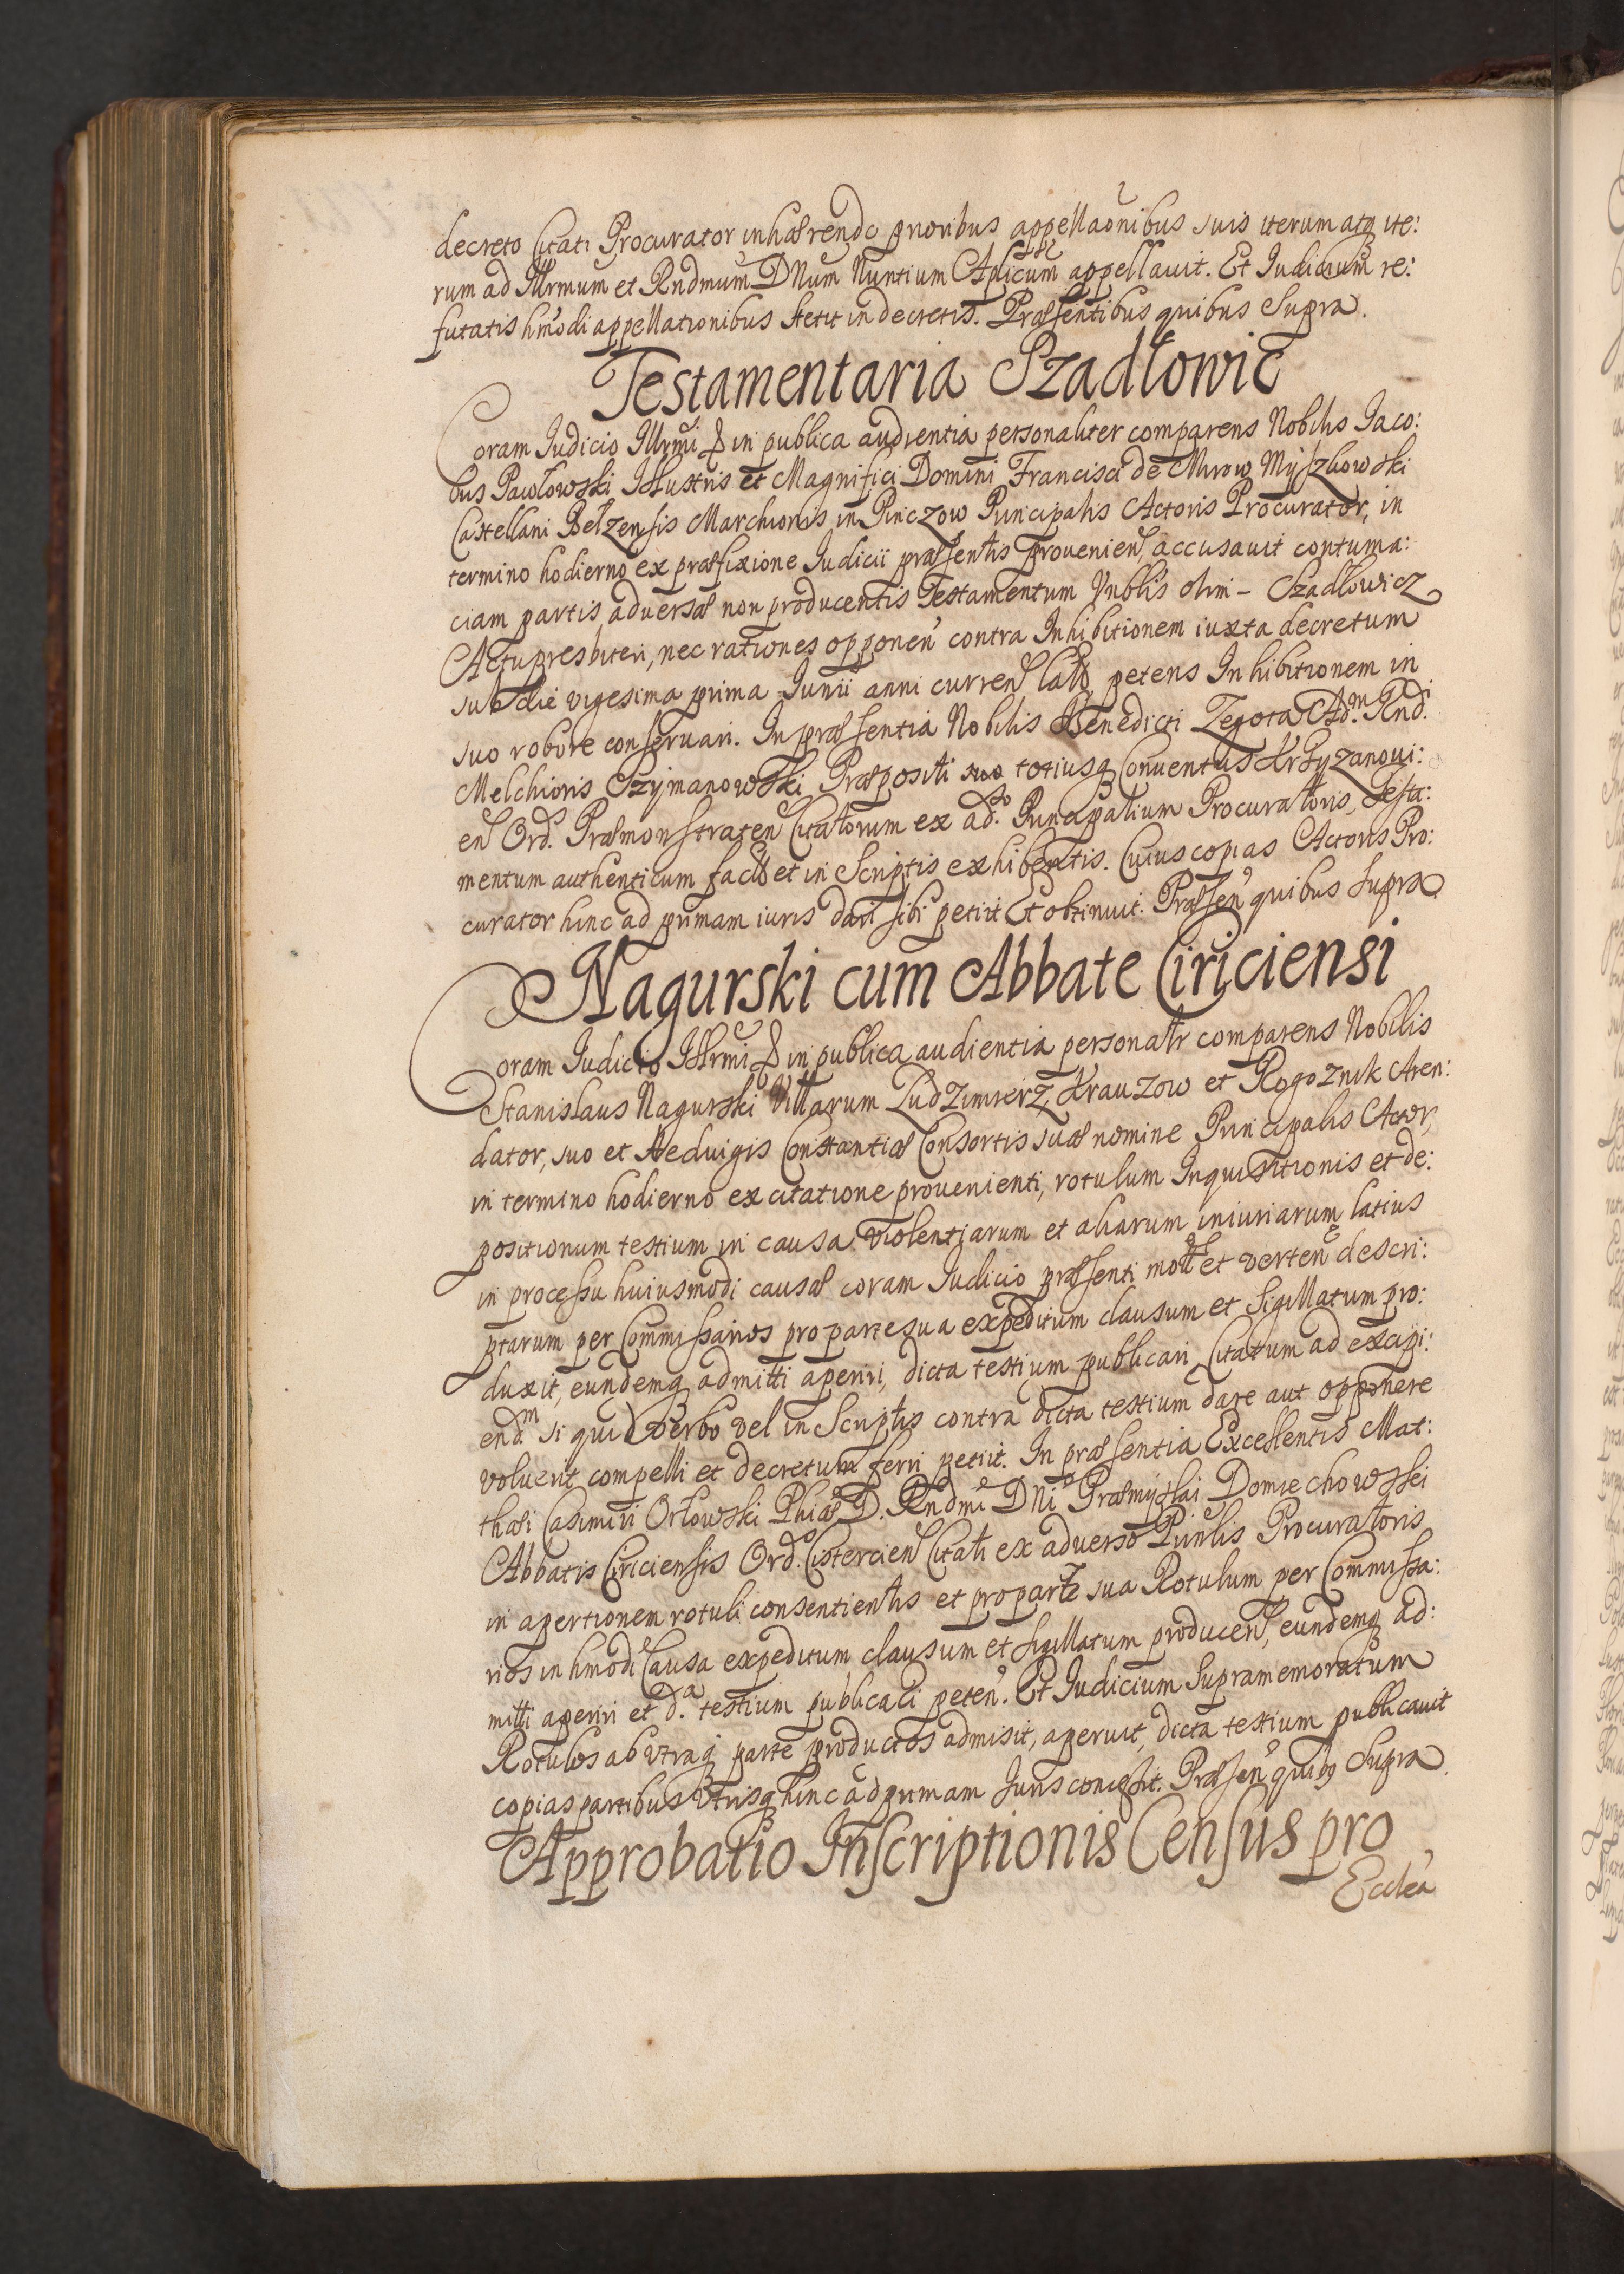 decreto Citati Procurator inhærendo prioribus appellaōnibus suis iterum atq ite:
rum ad Illrmum et Rndmum DNum Nuntium Aplicum appellauit. Et Iudicium re:
futatis hmōdi appellationibus stetit in decretis. Præsentibus quibus Supra.
Testamentaria Szadłowic
Coram Iudicio Illrmi & in publica audientia personaliter comparens Nobilis Iaco:
bus Pawłowski Illustris et Magnifici Domini Francisci de Mirow Myszkowski
Castellani Belzensis Marchionis in Pinczow Principalis Actoris Procurator, in
termino hodierno ex præfixione Iudicii præsentis prouenien, accusauit contuma:
ciam partis aduersæ non producentis Testamentum Vnblis olim - Szadłowicz
Actupresbiteri, nec rationes opponen contra Inhibitionem iuxta decretum
sub die vigesima prima Iunii anni curren latū, petens Inhibitionem in
suo robore conseruari. In præsentia Nobilis Benedicti Zegota Ad.m Rnd.i
Melchioris Szÿmanowski Præpositi totiusq Conuentus Krzyzanoui:
en Ord. Præmonstraten Citatorum ex ad.so Principalium Procuratoris, Testa:
mentum authenticum et in Scriptis exhibentis. Cuius copias Actoris Pro:
curator hinc ad primam iuris dari sibi petiit Et obtinuit. Præsen quibus supra
Nagurski cum Abbate Ciriciensi
Coram Iudicio Illrmi & in publica audientia personalr comparens Nobilis
Stanislaus Nagurski Villarum Ludzimierz, Krauzow et Rogoznik Aren:
dator, suo et Heduigis Constantiæ Consortis suæ nomine Principalis Actor,
in termino hodierno ex citatione prouenienti, rotulum Inquisitionis et de:
positionum testium in causa violentiarum et aliarum iniuriarum latius
in processu huiusmodi causæ coram Iudicio præsenti et verten descri:
ptarum per Commissarios pro parte sua expeditum clausum et sigillatum pro:
duxit, eundemq admitti aperiri, dicta testium publicari, Citatum ad excipi:
end.m si quid verbo vel in Scriptis contra dicta testium dare aut opponere
voluerit compelli et decretum ferri petiit. In præsentia Excellentis Mat:
thæi Casimiri Orłowski Phiæ D. Rndmi DNi Præmÿslai Domiechowski
Abbatis Ciriciensis Ord. Cistercien Citati ex aduerso Prinlis Procuratoris
in apertionem rotuli consentientis et pro parte sua Rotulum per Commissa:
rios in hmodi Causa expeditum clausum et sigillatum producen, eundemq ad:
mitti aperiri et d.a testium publicari peten. Et Iudicium supramemoratum
Rotulos ab vtraq parte productos admisit, aperuit, dicta testium publicauit
copias partibus vtrisq hinc ad primam Iuris concessit. Præsen quibq Supra.
Approbatio Inscriptionis Census pro
Ecclea